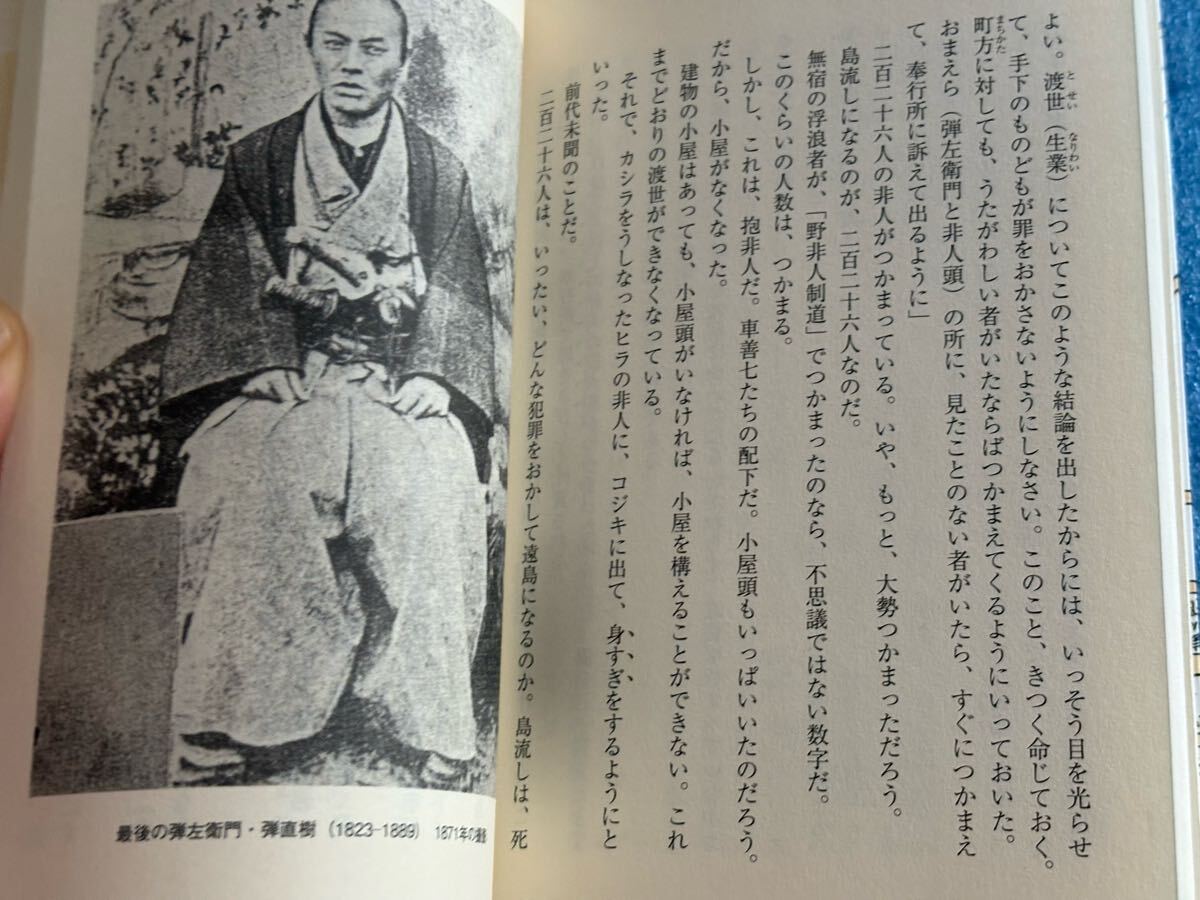 よい。渡世（生業）についてこのような結論を出したからには、いっそう目を光らせ
て、手下のものどもが罪をおかさないようにしなさい。このこと、きつく命じておく。
町方に対しても、うたがわしい者がいたならばつかまえてくるようにいっておいた。
おまえら（弾左衛門と非人頭）の所に、見たことのない者がいたら、すぐにつかまえ
て、奉行所に訴えて出るように」
二百二十六人の非人がつかまっている。いや、もっと、大勢つかまっただろう。
島流しになるのが、二百二十六人なのだ。
無宿の浮浪者が、「野非人制道」でつかまったのなら、不思議ではない数字だ。
このくらいの人数は、つかまる。
しかし、これは、抱非人だ。車善七たちの配下だ。小屋頭もいっぱいいたのだろう。
だから、小屋がなくなった。
建物の小屋はあっても、小屋頭がいなければ、小屋を構えることができない。これ
までどおりの渡世ができなくなっている。
それで、カシラをうしなったヒラの非人に、コジキに出て、身すぎをするようにと
いった。
前代未聞のことだ。
二百二十六人は、いったい、どんな犯罪をおかして遠島になるのか。島流しは、死
最後の弾左衛門・弾直樹（1823-1889） 1871年の撮影